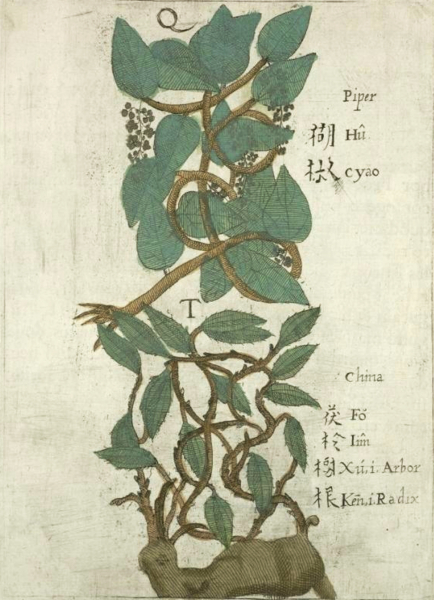 Q
Piper
楜 Hû
椒 Cyao
T
China
茯 Fó
柃 Lim
樹 Xú, i. Arbor
根 Kēn, i. Radix